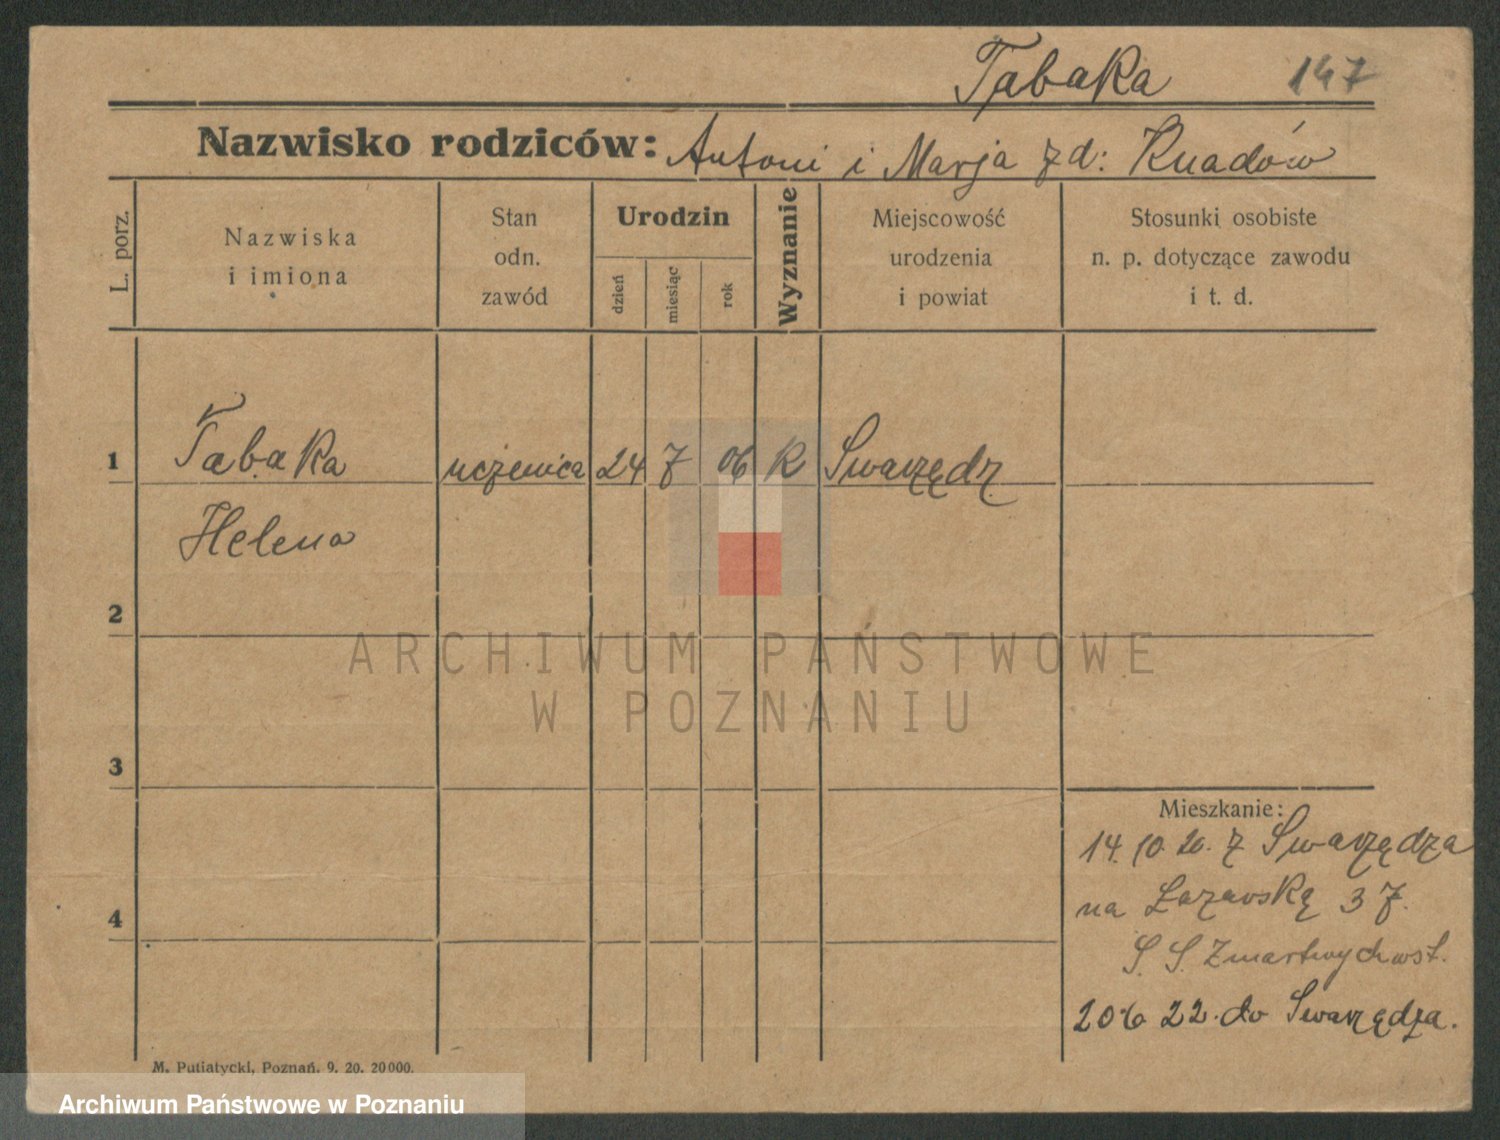 Tabaka 147
Nazwisko rodziców: Antoni i Marja zd: Knadów
L. porz.
Nazwiska
i imiona
Stan
odn.
zawód
Urodzin
dzień
miesiąc
rok
Wyznanie
Miejscowość
urodzenia
i powiat
Stosunki osobiste
n. p. dotyczące zawodu
i t. d.
1 Tabaka uczenica 24 7 06 K Swarzędz
Helena
2
ARCHIWUM PAŃSTWOWE
W POZNANIU
3
Mieszkanie:
14. 10. 20. z Swarzędza
na Łazarską 37.
4
S. S. Zmartwychwst.
20 6 22. do Swarzędza.
M. Putiatycki, Poznań. 9. 20. 20000.
Archiwum Państwowe w Poznaniu